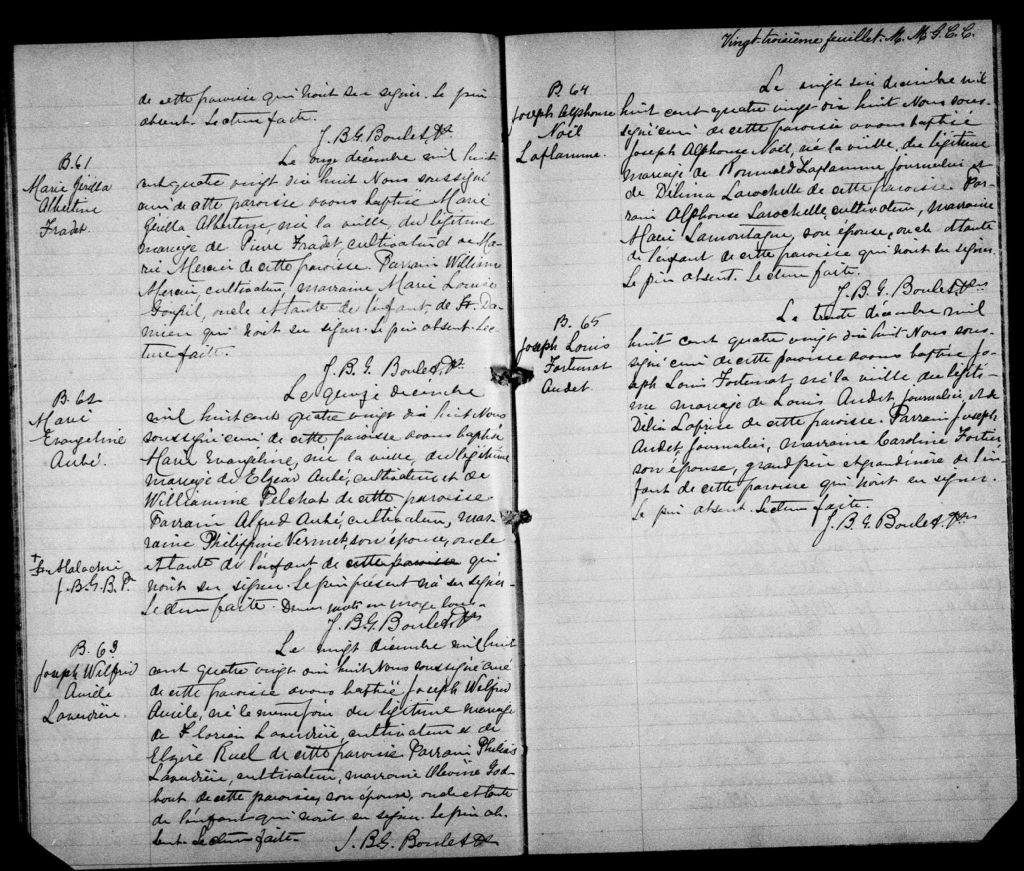 de cette paroisse qui n'ont su signer. Le père
absent. Lecture faite.
J. B. G. Boulet, Ptre
B. 61
Marie
Albertine
Fradet.
Le onze décembre mil huit
cent quatre vingt dix huit Nous soussigné
curé de cette paroisse avons baptisé Marie
Albertine, née la veille, du légitime
mariage de Pierre Fradet, cultivateur et de Ma-
rie Mercier de cette paroisse. Parrain William
Mercier cultivateur, marraine Marie Louise
Goupil, oncle et tante de l'enfant, de St. Da-
mien qui n'ont su signer. Le père absent. Lec-
ture faite.
J. B. G. Boulet, Ptre
B. 62
Marie
Evangeline
Aubé.
Le quinze décembre
mil huit cent quatre vingt dix huit Nous
soussigné curé de cette paroisse avons baptisé
Marie Evangeline, née la veille, du légitime
mariage de Elzear Aubé, cultivateur et de
Williamine Pelchat de cette paroisse.
Parrain Alfred Aubé, cultivateur, mar-
raine Philippine Vermet, son épouse, oncle
et tante de l'enfant de cette paroisse qui
n'ont su signer. Le père présent n'a su signer.
Lecture faite. Deux mots en marge bons.
J. B. G. Boulet, Ptre
St. Malachie
J. B. G. B. Ptre
B. 63
Joseph Wilfrid
Aurèle
Laverdière.
Le vingt décembre mil huit
cent quatre vingt dix huit Nous soussigné curé
de cette paroisse avons baptisé Joseph Wilfrid
Aurèle, né le même jour du légitime mariage
de Florian Laverdière, cultivateur et de
Elzire Ruel de cette paroisse. Parrain Philéas
Laverdière, cultivateur, marraine Olevine God-
bout de cette paroisse, son épouse, oncle et tante
de l'enfant qui n'ont su signer. Le père ab-
sent. Lecture faite.
J. B. G. Boulet Ptre
Vingt-troisième feuillet. M. M. G. C. C.
B. 64
Joseph Alphonse
Noël
Laflamme.
Le vingt six décembre mil
huit cent quatre vingt dix huit Nous sous-
signé curé de cette paroisse avons baptisé
Joseph Alphonse Noël, né la veille, du légitime
mariage de Romuald Laflamme journalier et
de Délima Larochelle de cette paroisse. Par-
rain Alphonse Larochelle, cultivateur, marraine
Marie Lamontagne, son épouse, oncle et tante
de l'enfant de cette paroisse qui n'ont su signer.
Le père absent. Lecture faite.
J. B. G. Boulet, Ptre
B. 65
Joseph Louis
Fortunat
Audet.
Le trente décembre mil
huit cent quatre vingt dix huit Nous sous-
signé curé de cette paroisse avons baptisé Jo-
seph Louis Fortunat, né la veille, du légiti-
me mariage de Louis Audet, journalier, et de
Délia Laprise de cette paroisse. Parrain Joseph
Audet, journalier, marraine Caroline Fortier
son épouse, grand père et grand'mère de l'en-
fant de cette paroisse qui n'ont su signer.
Le père absent. Lecture faite.
J. B. G. Boulet, Ptre